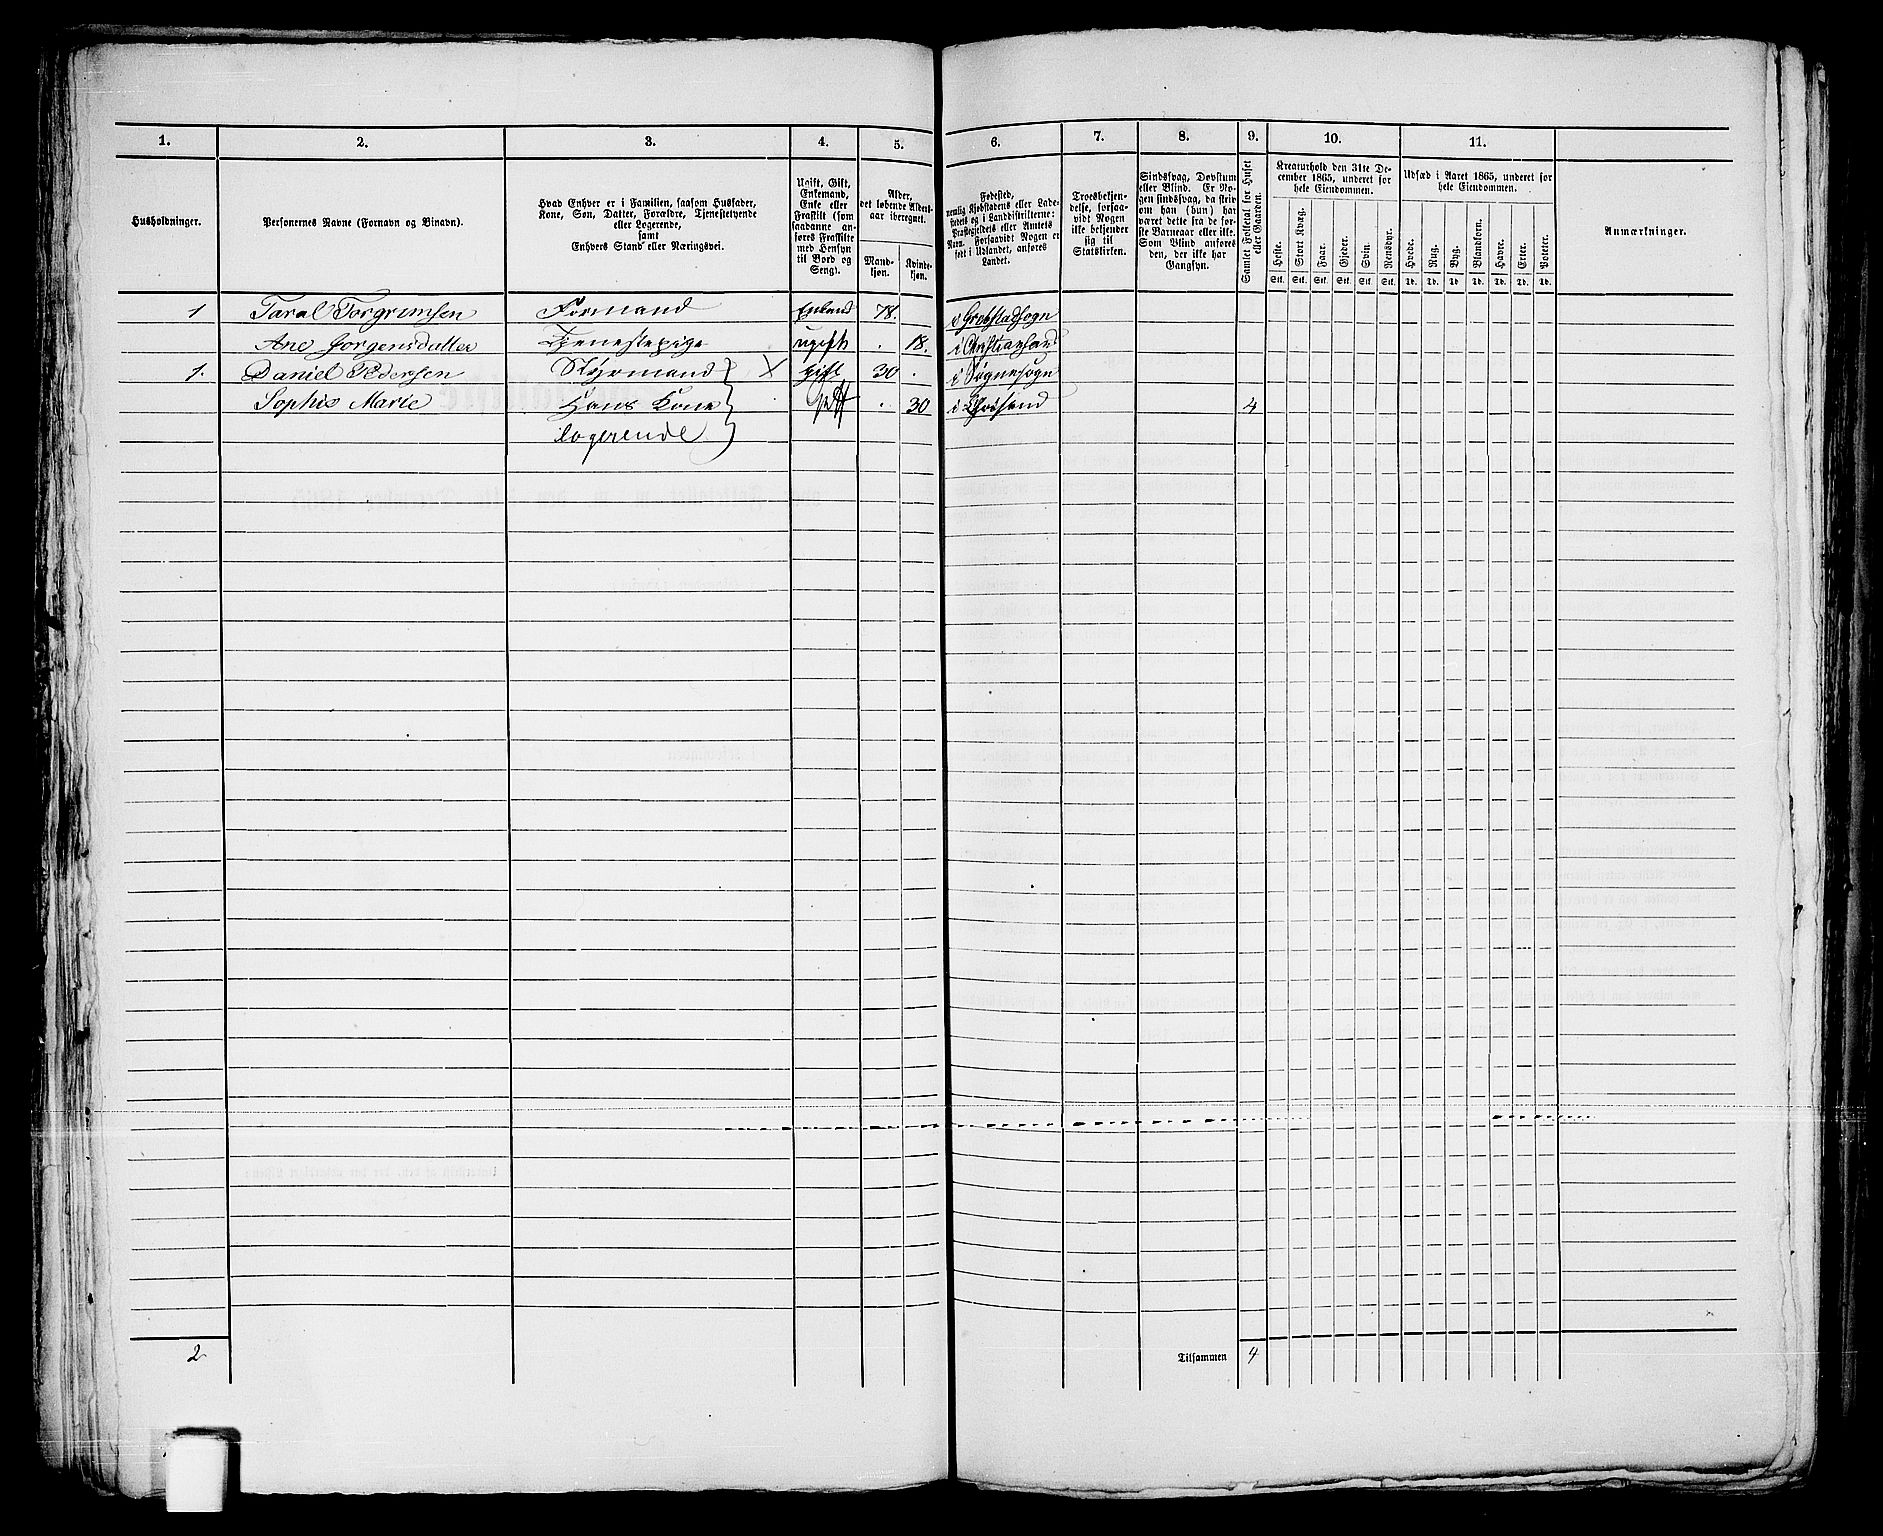 1. 2. 3. 4. 5. 6. 7. 8. 9. 10. 11.
Husholdninger.
Personernes Navne (Fornavn og Binavn).
Hvad Enhver er i Familien, saasom Husfader,
Kone, Søn, Datter, Forældre, Tjenestetyende
eller Logerende,
samt
Enhvers Stand eller Næringsvei.
Ugift, Gift,
Enkemand,
Enke eller
Fraskilt (som
saadanne an-
føres Fraskilte
med Hensyn
til Bord og
Seng).
Alder,
det løbende Alders-
aar iberegnet.
Mand-
kjøn.
Kvinde-
kjøn.
Fødested,
nemlig Kjøbstadens eller Lade-
stedets og i Landdistrikterne:
Præstegjeldets eller Amtets
Navn. Forsaavidt Nogen er
født i Udlandet, anføres
Landet.
Troesbekjen-
delse, forsaa-
vidt Nogen
ikke bekjender
sig til
Statskirken.
Sindssvag, Døvstum
eller Blind. Er No-
gen sindssvag, da skriv
om han (hun) har
været dette fra de før-
ste Barneaar eller ikke.
Som Blind anføres
den, der ikke har
Gangsyn.
Samlet Folketal for Huset
eller Gaarden.
Kreaturhold den 31te De-
cember 1865, underet for
hele Eiendommen.
Heste. Stort Kvæg. Faar. Gjeder. Svin. Rensdyr.
Stk. Stk. Stk. Stk. Stk. Stk.
Udsæd i Aaret 1865, underet for
hele Eiendommen.
Hvede. Rug. Byg. Blandkorn. Havre. Erter. Poteter.
Td. Td. Td. Td. Td. Td. Td.
Anmærkninger.
1 Taral Torgrimsen Formand Enkmd 78. i Grebstadsogn
Ane Jørgensdatter Tjenestepige ugift . 18. i Christiansand
1. Daniel Pedersen Styrmand X gift 30 . i Søgnesogn
Sophie Marie Hans Kone gift . 30 i Chrisand 4
logerende
2 Tilsammen 4